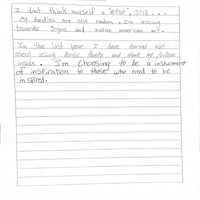 I dont think myself a "Artist", still . . .
My doodles are still random. I'm
towards Signs and native american art.
In the last year I have learned alot
about using Acrylic Paints and
inside. I'm Choosing to be a instrument
of inspiration to those who need to be
inspired.